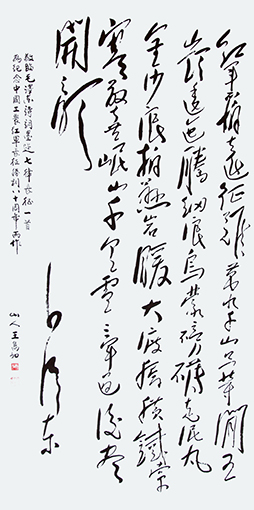 红軍不怕远征难萬水千山只等閒五
岭逶迤腾细浪乌蒙磅礴走泥丸
金沙浪拍悬岩暖大渡桥横鐵索
寒更喜岷山千里雪三军过后尽
開颜
毛泽东
敬临毛泽东诗词墨迹七律长征一首
为纪念中国工农红军长征胜利八十周年而作
山人王